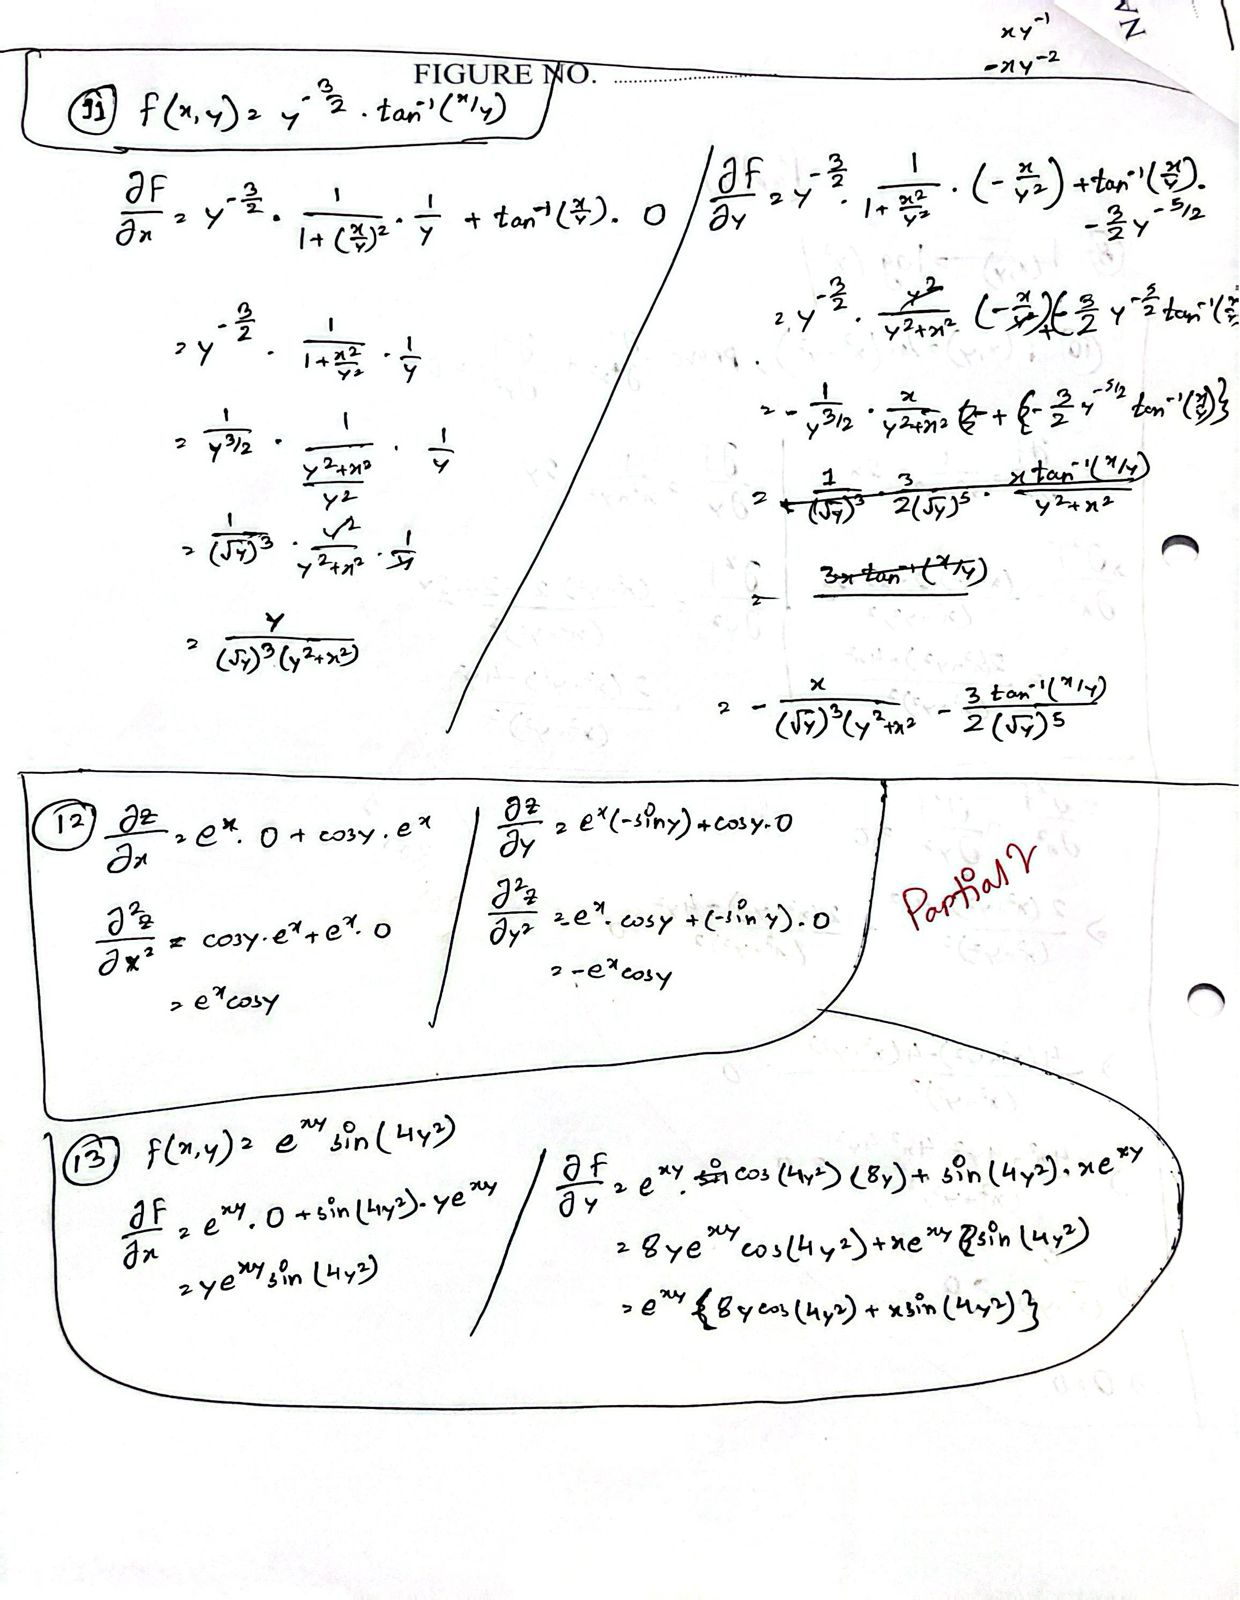 xy⁻¹
-xy⁻²
FIGURE NO. ........................................
11 f(x,y) = y^(-3/2) . tan⁻¹(x/y)
∂f/∂x = y^(-3/2) . 1/(1+(x/y)²) . 1/y + tan⁻¹(x/y). 0
= y^(-3/2) . 1/(1+x²/y²) . 1/y
= 1/y^(3/2) . 1/((y²+x²)/y²) . 1/y
= 1/(√y)³ . y²/(y²+x²) . 1/y
= y/((√y)³(y²+x²))
∂f/∂y = y^(-3/2) . 1/(1+x²/y²) . (-x/y²) + tan⁻¹(x/y).
-3/2 y^(-5/2)
= y^(-3/2) . y²/(y²+x²) (-x/y²) + (-3/2 y^(-5/2) tan⁻¹(x/y
= -1/y^(3/2) . x/(y²+x²) + {-3/2 y^(-5/2) tan⁻¹(x/y)}
= 1/(√y)³ . 3/(2(√y)⁵) . x tan⁻¹(x/y)/(y²+x²)
= 3x tan⁻¹(x/y)
= - x/((√y)³(y²+x²) - 3 tan⁻¹(x/y)/(2(√y)⁵)
12 ∂z/∂x = eˣ. 0 + cosy . eˣ
∂²z/∂x² = cosy.eˣ + eˣ. 0
= eˣcosy
∂z/∂y = eˣ(-siny) + cosy.0
∂²z/∂y² = -eˣ. cosy + (-sin y). 0
= -eˣcosy
Partial 2
13 f(x,y) = e^(xy) sin(4y²)
∂f/∂x = e^(xy). 0 + sin(4y²). ye^(xy)
= ye^(xy) sin(4y²)
∂f/∂y = e^(xy). cos(4y²)(8y) + sin(4y²). xe^(xy)
= 8ye^(xy) cos(4y²) + xe^(xy) sin(4y²)
= e^(xy) {8ycos(4y²) + xsin(4y²)}